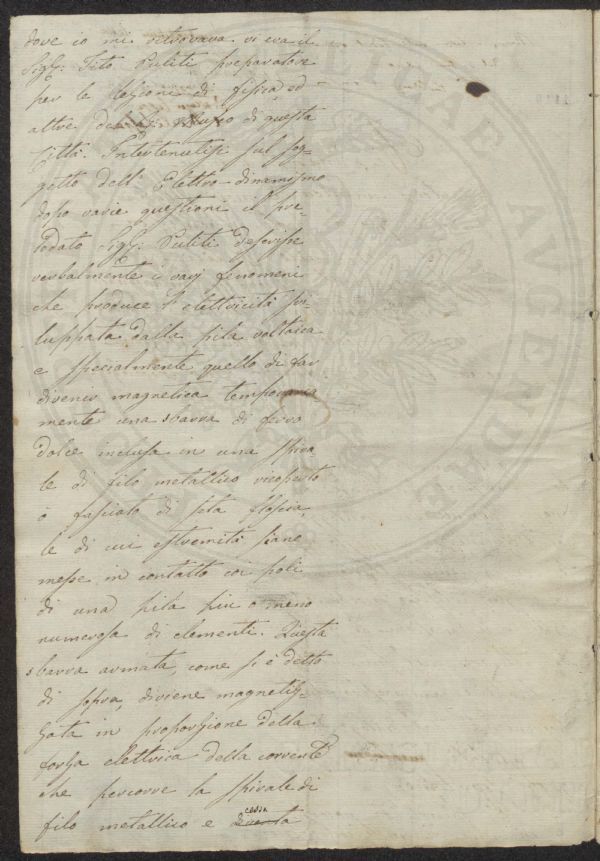 dove io mi ritrovava vi era il
Sigr. Tito Puliti preparatore
per le lezioni di fisica ed
altre del Museo di questa
Città. Intertenutisi sul sog-
getto dell' Elettro-dinamismo
dopo varie questioni il pre-
lodato Sigr. Puliti descrisse
verbalmente i varj fenomeni
che produce l' elettricità svi-
luppata dalla pila voltaica
e specialmente quello di far
divenir magnetica temporaria
mente una sbarra di ferro
dolce inclusa in una spira
le di filo metallico ricoperto
o fasciato di seta floscia,
le di cui estremità siano
messe in contatto coi poli
di una pila più o meno
numerosa di elementi. Questa
sbarra armata, come si è detto
di sopra, diviene magnetiz-
zata in proporzione della
forza elettrica della corrente
che percorre la spirale di
filo metallico e cessa
AVGENDAE